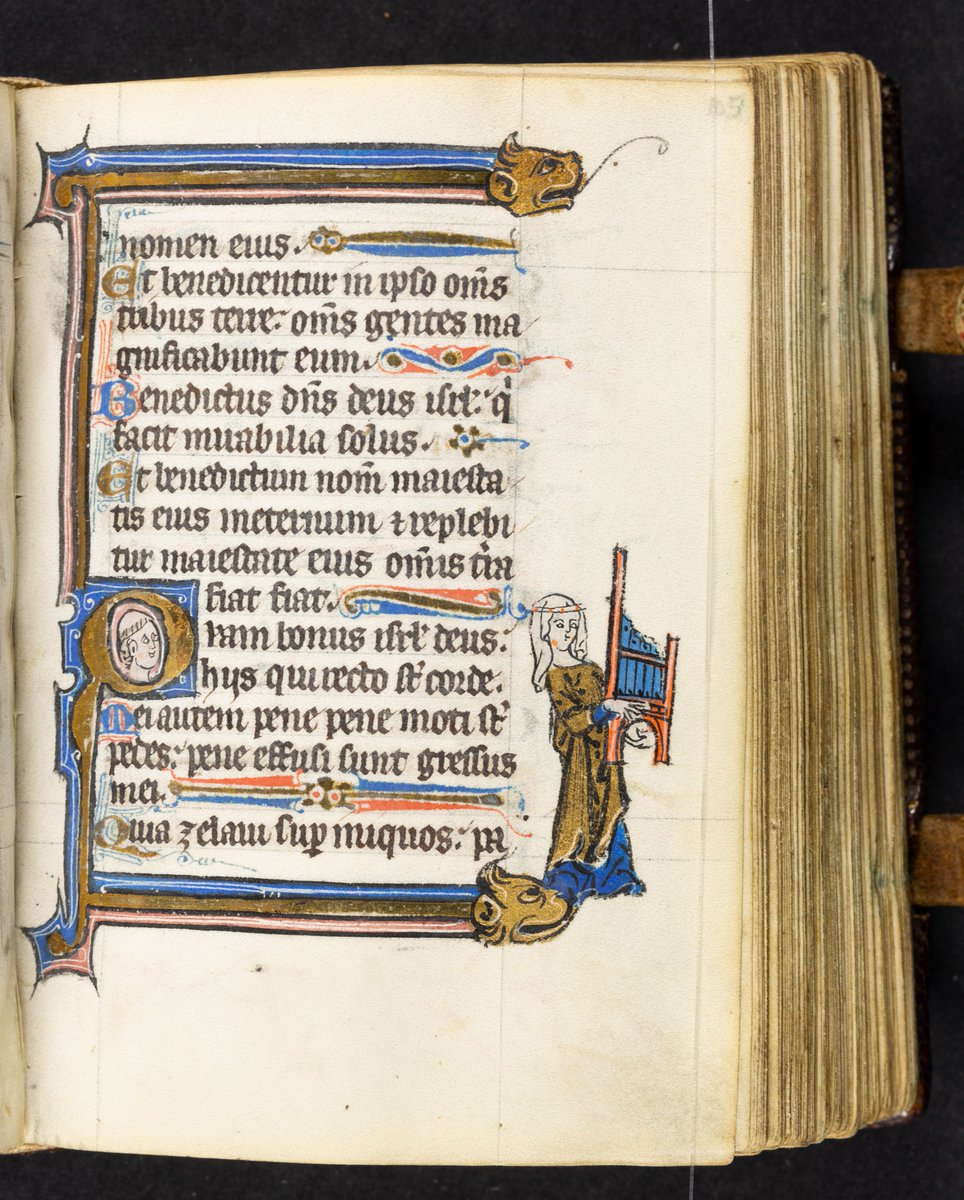 nomen eius.
Et benedicentur in ipso om̄s
tribus terre: om̄s gentes ma
gnificabunt eum.
Benedictus dn̄s deus isrl̓: qͥ
facit mirabilia solus.
Et benedictum nom̄ maiesta
tis eius ineternum ⁊ replebi
tur maiestate eius om̄is t̓ra
fiat fiat.
Quam bonus isrl̓ deus:
hijs qui recto st̓ corde.
Mei autem pene pene moti st̓
pedes: pene effusi sunt gressus
mei.
Quia zelaui sup̱ iniquos: pa